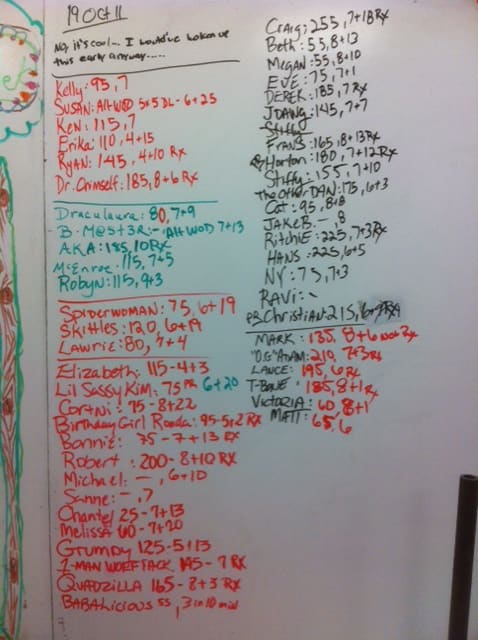 19 Oct 11
No, it's cool... I would've woken up
this early anyway.....
Kelly: 95, 7
SUSAN: Alt WOD 5x5 DL - 6+25
Ken: 115, 7
Erika: 110, 4+15
Ryan: 145, 4+10 Rx
Dr. Crimself: 185, 8+6 Rx
Draculaura: 80, 7+9
B-M@ST3R:- Alt WOD 7+13
AKA: 185, 10 Rx
McEnroe: 115, 7+5
Robyn: 115, 9+3
Spiderwoman: 75, 6+19
Skittles: 120, 6+19
Lawrie: 80, 7+4
Elizabeth: 115-4+3
Lil Sassy Kim: 75 PR 6+20
Cortni: 75-8+22
Birthday Girl Ronda: 95-5+2 Rx
Bonnie: 75-7+13 Rx
Robert: 200-8+10 Rx
Michael: -, 6+10
Sanne: -, 7
Chantel 25-7+13
Melissa 60-7+20
Grumpy 125-5+13
1-MAN WOLFPACK, 145-7 Rx
QUADZILLA 165-8+3 Rx
BABALicious 55, 3 in 10 min
Craig: 255, 7+18 Rx
Beth: 55, 8+13
Megan: 55, 8+10
EVE: 75, 7+1
DEREK: 185, 7 Rx
JDAWG: 145, 7+7
Stiffy
FRANS: 165, 8+13 Rx
Horton: 180, 7+12 Rx
Stiffy: 155, 7+10
The Other DAN: 175, 6+3
Cat: 95, 8+8
JAKE B. -, 8
RitchiE: 225, 7+3 Rx
HANS: 225, 6+5
NY: 75, 7+3
RAVi: -
PR Christian: 215,
MARK: 135, 8+6
"O.G" ADAM: 210, 7+3 Rx
LANCE: 195, 6 Rx
T-BONE 185, 8+1 Rx
VICTORIA: 60, 8+1
MATT: 65, 6